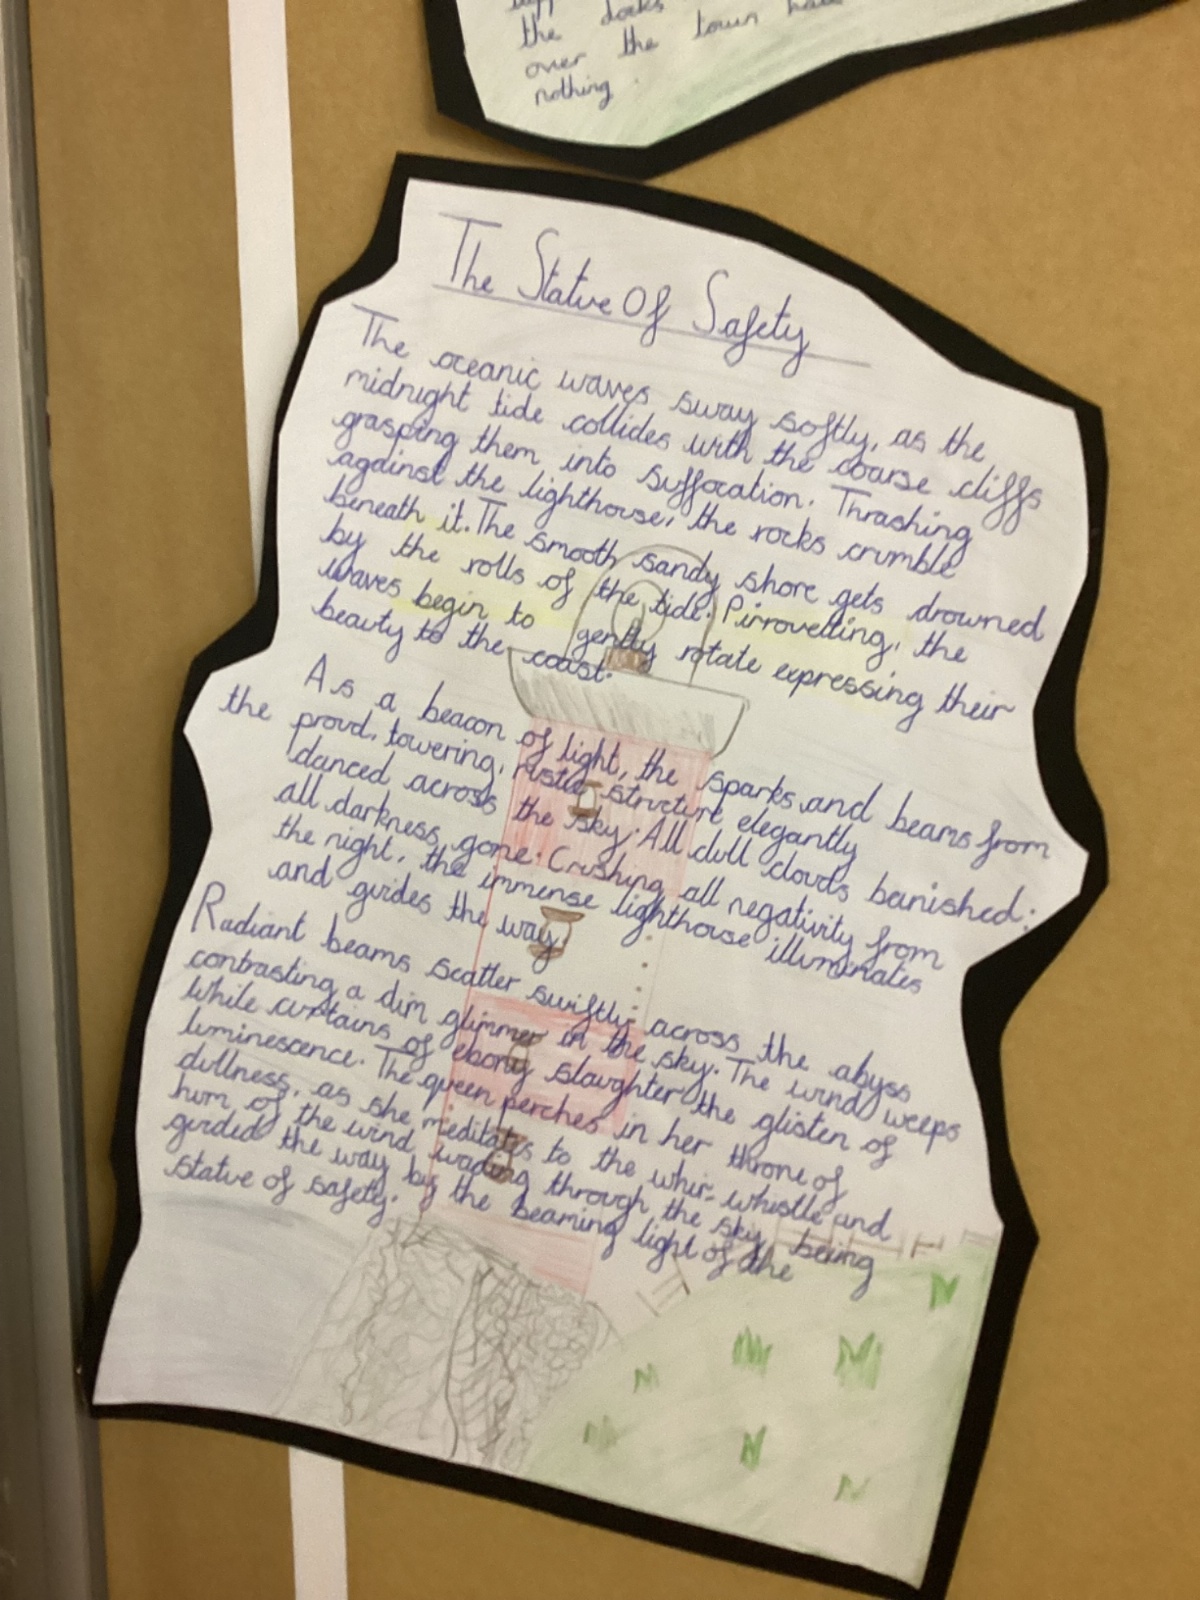 the docks
over the town hall
nothing.
The Statue Of Safety
The oceanic waves sway softly, as the
midnight tide collides with the coarse cliffs
grasping them into suffocation. Thrashing
against the lighthouse, the rocks crumble
beneath it. The smooth sandy shore gets drowned
by the rolls of the tide. Pirrovetting, the
waves begin to gently rotate expressing their
beauty to the coast.
As a beacon of light, the sparks and beams from
the proud, towering, rustic structure elegantly
danced across the sky. All dull clouds banished:
all darkness gone. Crushing all negativity from
the night, the immense lighthouse illuminates
and guides the way.
Radiant beams scatter swiftly across the abyss
contrasting a dim glimmer in the sky. The wind weeps
while curtains of ebony slaughter the glisten of
luminescence. The queen perches in her throne of
dullness, as she meditates to the whir, whistle and
hum of the wind wading through the sky being
guided the way by the beaming light of the
statue of safety.